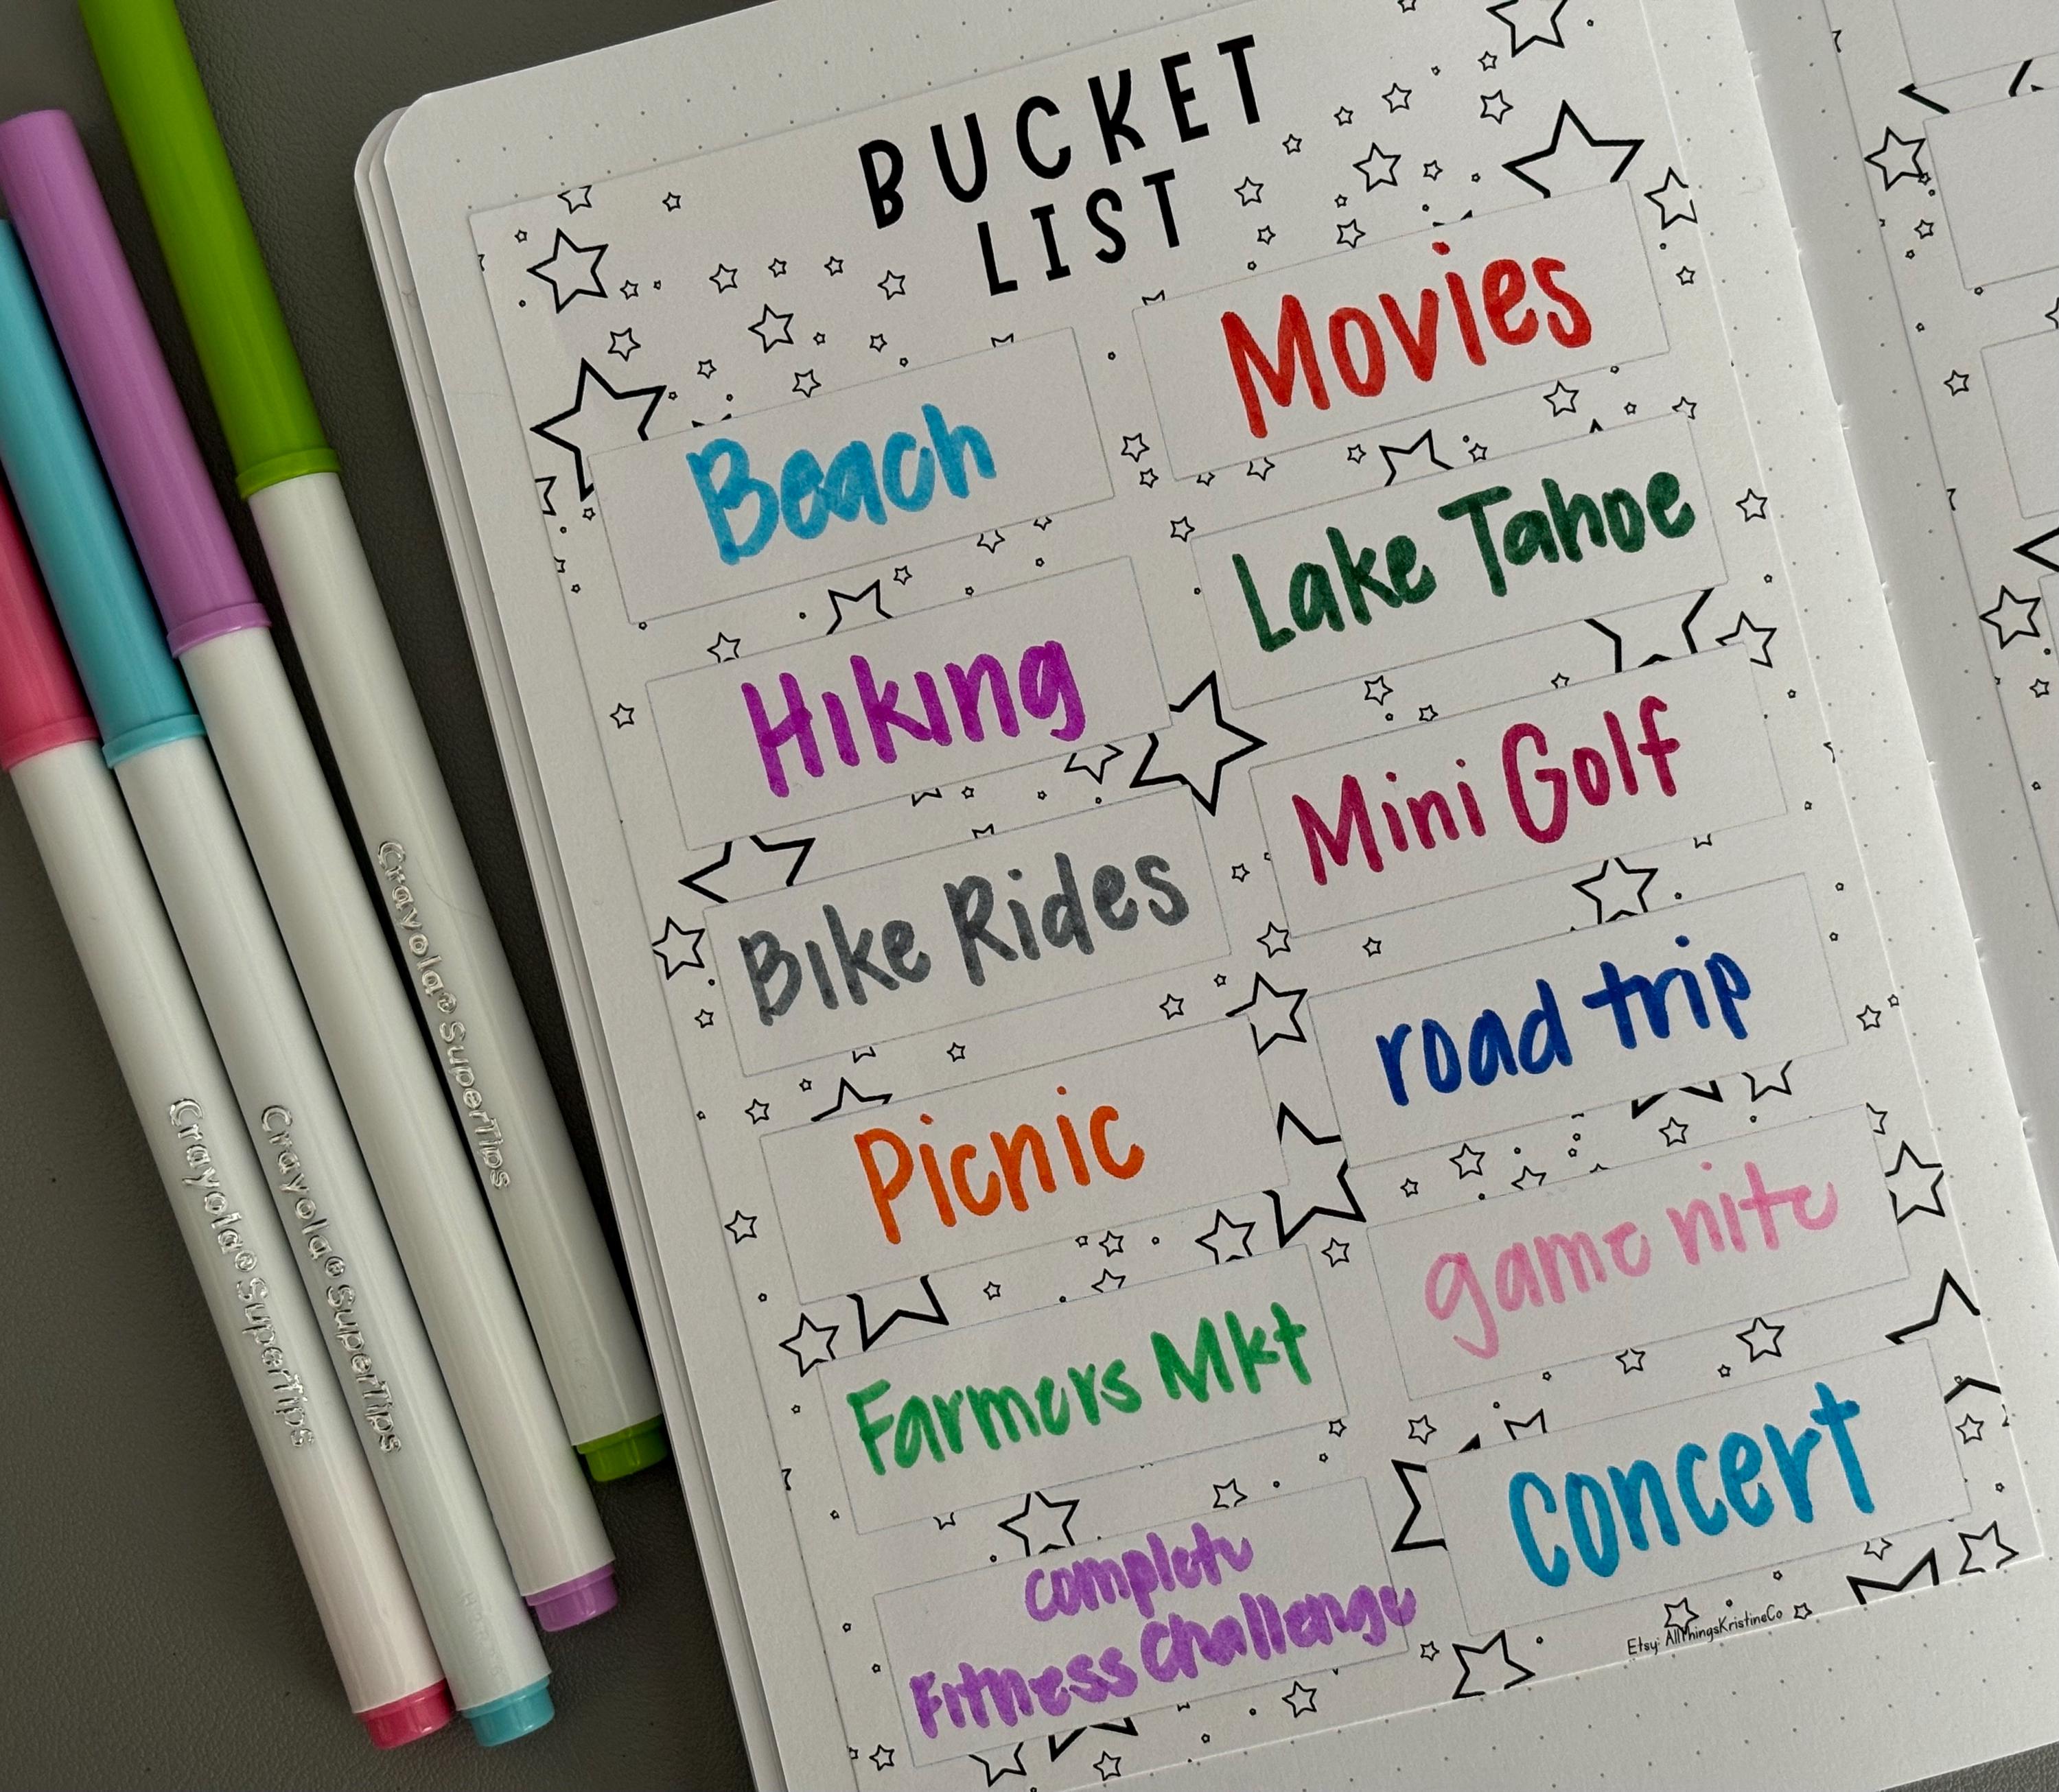 BUCKET
LIST
Movies
Beach
Lake Tahoe
Hiking
Mini Golf
Bike Rides
road trip
Picnic
game nite
Farmers Mkt
Concert
Complete
Fitness Challenge
Etsy: AllThingsKristineCo
Crayola® SuperTips
Crayola® SuperTips
Crayola® SuperTips